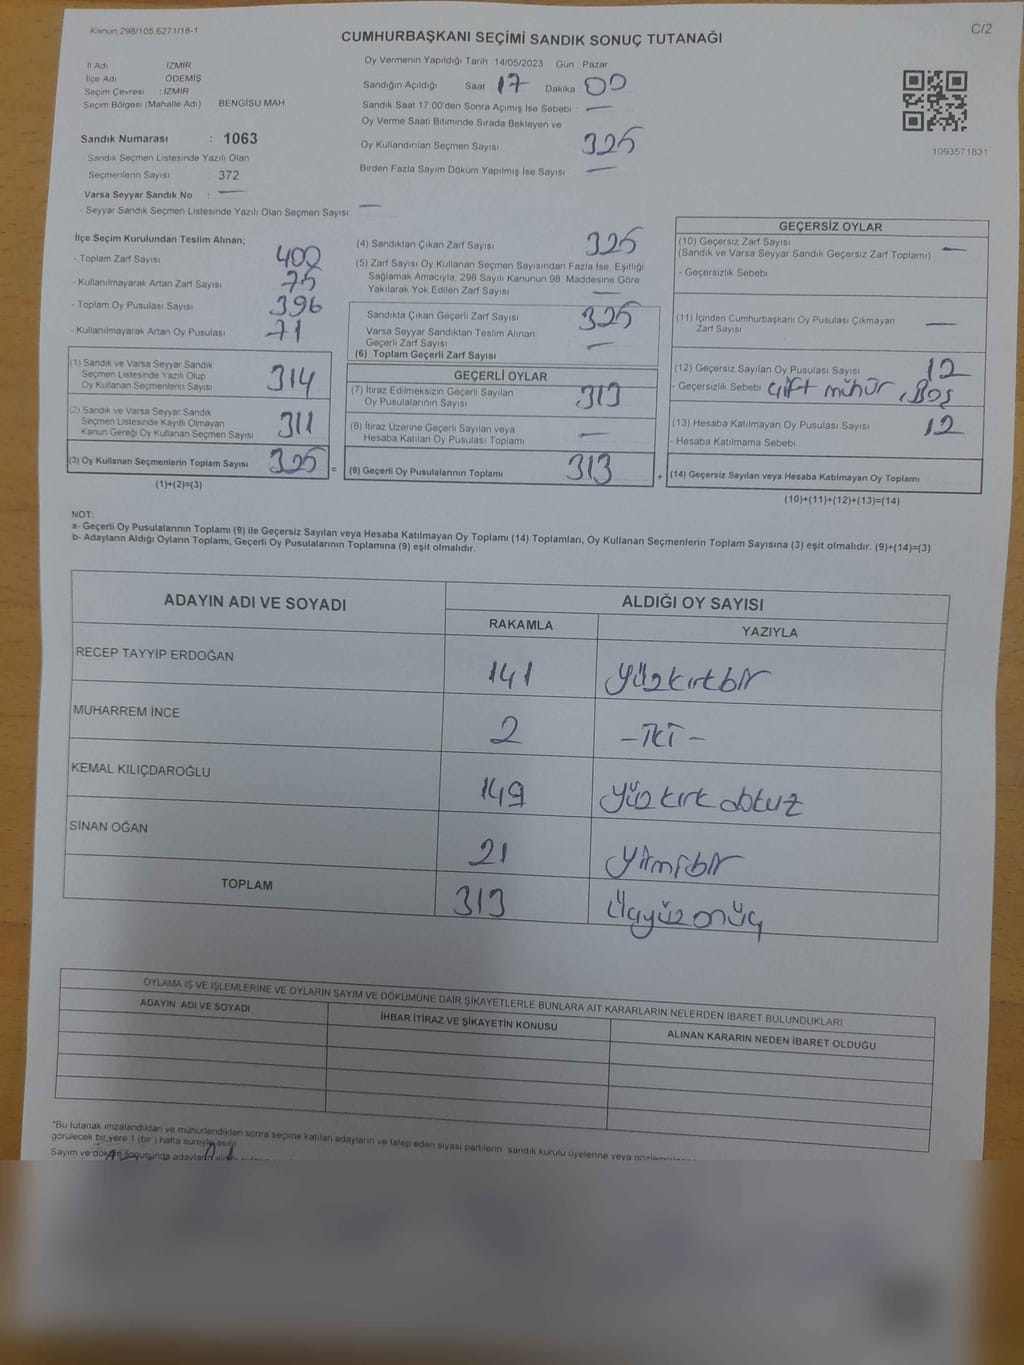 Kanun 298/105,6271/18-1
C/2
CUMHURBAŞKANI SEÇİMİ SANDIK SONUÇ TUTANAĞI
İl Adı İZMİR
İlçe Adı ÖDEMİŞ
Seçim Çevresi : İZMİR
Seçim Bölgesi (Mahalle Adı) BENGİSU MAH
Oy Vermenin Yapıldığı Tarih 14/05/2023 Gün Pazar
Sandığın Açıldığı Saat 17 Dakika 00
Sandık Saat 17:00'den Sonra Açımış İse Sebebi : —
Oy Verme Saati Bitiminde Sırada Bekleyen ve
Oy Kullandırılan Seçmen Sayısı 325
Birden Fazla Sayım Döküm Yapılmış İse Sayısı —
1093571831
Sandık Numarası : 1063
- Sandık Seçmen Listesinde Yazılı Olan
Seçmenlerin Sayısı : 372
Varsa Seyyar Sandık No : —
- Seyyar Sandık Seçmen Listesinde Yazılı Olan Seçmen Sayısı —
İlçe Seçim Kurulundan Teslim Alınan;
- Toplam Zarf Sayısı 400
- Kullanılmayarak Artan Zarf Sayısı 75
- Toplam Oy Pusulası Sayısı 396
- Kullanılmayarak Artan Oy Pusulası 71
(1) Sandık ve Varsa Seyyar Sandık
Seçmen Listesinde Yazılı Olup
Oy Kullanan Seçmenlerin Sayısı 314
(2) Sandık ve Varsa Seyyar Sandık
Seçmen Listesinde Kayıtlı Olmayan
Kanun Gereği Oy Kullanan Seçmen Sayısı 311
(3) Oy Kullanan Seçmenlerin Toplam Sayısı 325 =
(1)+(2)=(3)
(4) Sandıktan Çıkan Zarf Sayısı 325
(5) Zarf Sayısı Oy Kullanan Seçmen Sayısından Fazla İse, Eşitliği
Sağlamak Amacıyla, 298 Sayılı Kanunun 98. Maddesine Göre
Yakılarak Yok Edilen Zarf Sayısı —
Sandıkta Çıkan Geçerli Zarf Sayısı 325
Varsa Seyyar Sandıktan Teslim Alınan
Geçerli Zarf Sayısı —
(6) Toplam Geçerli Zarf Sayısı
GEÇERLİ OYLAR
(7) İtiraz Edilmeksizin Geçerli Sayılan
Oy Pusulalarının Sayısı 313
(8) İtiraz Üzerine Geçerli Sayılan veya
Hesaba Katılan Oy Pusulası Toplamı —
(9) Geçerli Oy Pusulalarının Toplamı 313 +
GEÇERSİZ OYLAR
(10) Geçersiz Zarf Sayısı —
(Sandık ve Varsa Seyyar Sandık Geçersiz Zarf Toplamı)
- Geçersizlik Sebebi
(11) İçinden Cumhurbaşkanı Oy Pusulası Çıkmayan
Zarf Sayısı —
(12) Geçersiz Sayılan Oy Pusulası Sayısı 12
- Geçersizlik Sebebi çift mühür, Boş
(13) Hesaba Katılmayan Oy Pusulası Sayısı 12
- Hesaba Katılmama Sebebi
(14) Geçersiz Sayılan veya Hesaba Katılmayan Oy Toplamı
(10)+(11)+(12)+(13)=(14)
NOT:
a- Geçerli Oy Pusulalarının Toplamı (9) ile Geçersiz Sayılan veya Hesaba Katılmayan Oy Toplamı (14) Toplamları, Oy Kullanan Seçmenlerin Toplam Sayısına (3) eşit olmalıdır. (9)+(14)=(3)
b- Adayların Aldığı Oyların Toplamı, Geçerli Oy Pusulalarının Toplamına (9) eşit olmalıdır.
ADAYIN ADI VE SOYADI ALDIĞI OY SAYISI
RAKAMLA YAZIYLA
RECEP TAYYİP ERDOĞAN 141 yüzkırkbir
MUHARREM İNCE 2 - İKİ -
KEMAL KILIÇDAROĞLU 149 yüzkırkdokuz
SİNAN OĞAN 21 yirmibir
TOPLAM 313 üçyüzonüç
OYLAMA İŞ VE İŞLEMLERİNE VE OYLARIN SAYIM VE DÖKÜMÜNE DAİR ŞİKAYETLERLE BUNLARA AİT KARARLARIN NELERDEN İBARET BULUNDUKLARI
ADAYIN ADI VE SOYADI İHBAR İTİRAZ VE ŞİKAYETİN KONUSU ALINAN KARARIN NEDEN İBARET OLDUĞU
*Bu tutanak imzalandıktan ve mühürlendikten sonra seçime katılan adayların ve talep eden siyasi partilerin sandık kurulu üyelerine veya
görülecek bir yere 1 (bir) hafta süreyle asılır
Sayım ve döküm